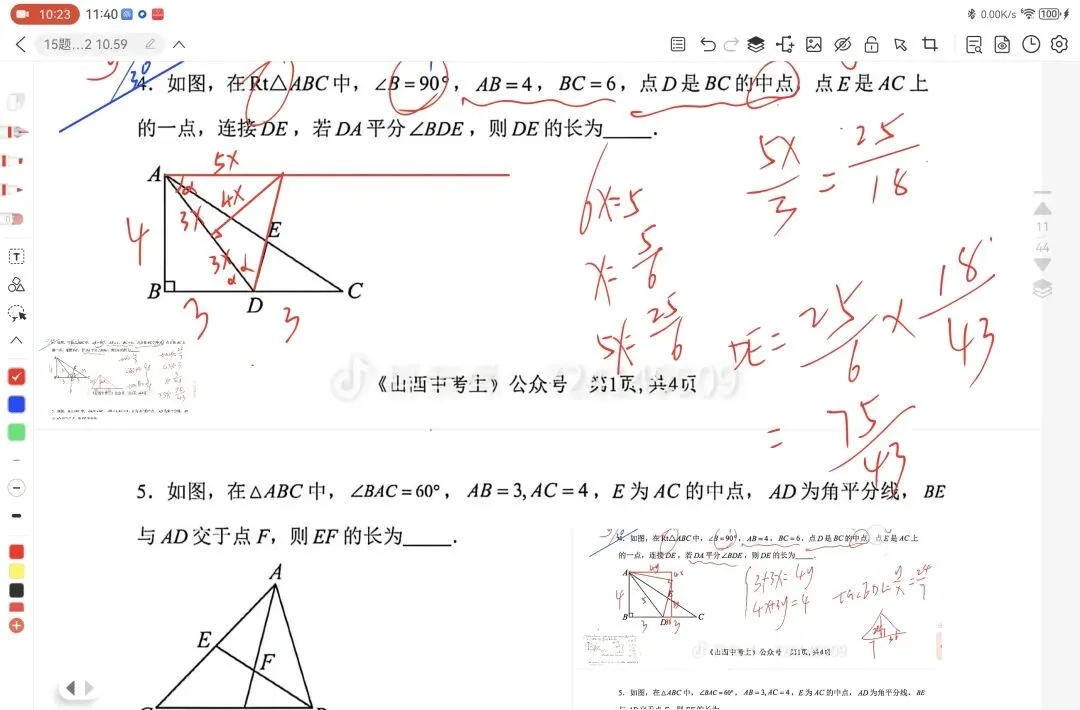 10:23 11:40 0.00K/s 100
15题...2 10.59
30
4. 如图，在Rt△ABC中，∠B=90°，AB=4，BC=6，点D是BC的中点，点E是AC上
的一点，连接DE，若DA平分∠BDE，则DE的长为_____.
5x
A
α α
4x
3x
4
E
3x
α α
B D C
3 3
6x=5
x=5/6
5x=25/6
5x/3=25/18
DE=25/6×18/43
=75/43
《山西中考上》公众号 第1页,共4页
11
44
5. 如图，在△ABC中，∠BAC=60°，AB=3,AC=4，E为AC的中点，AD为角平分线，BE
与AD交于点F，则EF的长为_____.
A
E
F
4. 如图，在Rt△ABC中，∠B=90°，AB=4，BC=6，点D是BC的中点，点E是AC上
的一点，连接DE，若DA平分∠BDE，则DE的长为_____.
4y
A
4x
5
4
E
B D C
3 3
3+3x=4y
4x+3y=4
tan∠BDE=y/x=24/7
《山西中考上》公众号 第1页,共4页
5. 如图，在△ABC中，∠BAC=60°，AB=3,AC=4，E为AC的中点，AD为角平分线，BE
与AD交于点F，则EF的长为_____.